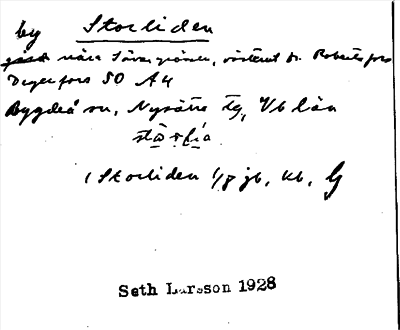 by Storliden
gård nära Sävargränsen, västerut fr. Robertsfors
Degerfors SO A4
Bygdeå sn, Nysätra tg, Vb län
(Storliden 1/8 jb, kb, G
Seth Larsson 1928